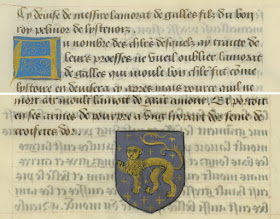 Cy deuise de messire lamorat de galles filz du bon
roy pelinor de lystenoiz.
Au nombre des chlrs desquelz ay traicte de
leurs proesses ne vueil oublier lamorat
de galles qui moult bon chlr fut come
lystoire en deuisera cy apres mais pource qui ne
mort aymoult lamoit de grant amour. Et portoit
en ses armes de pourpre a ung lyepart dor seme de
croisettes dor.